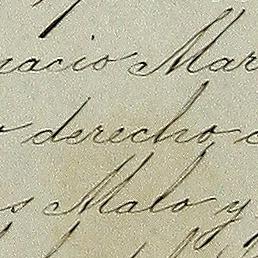 nacio Mar
o derecho
s Malo y